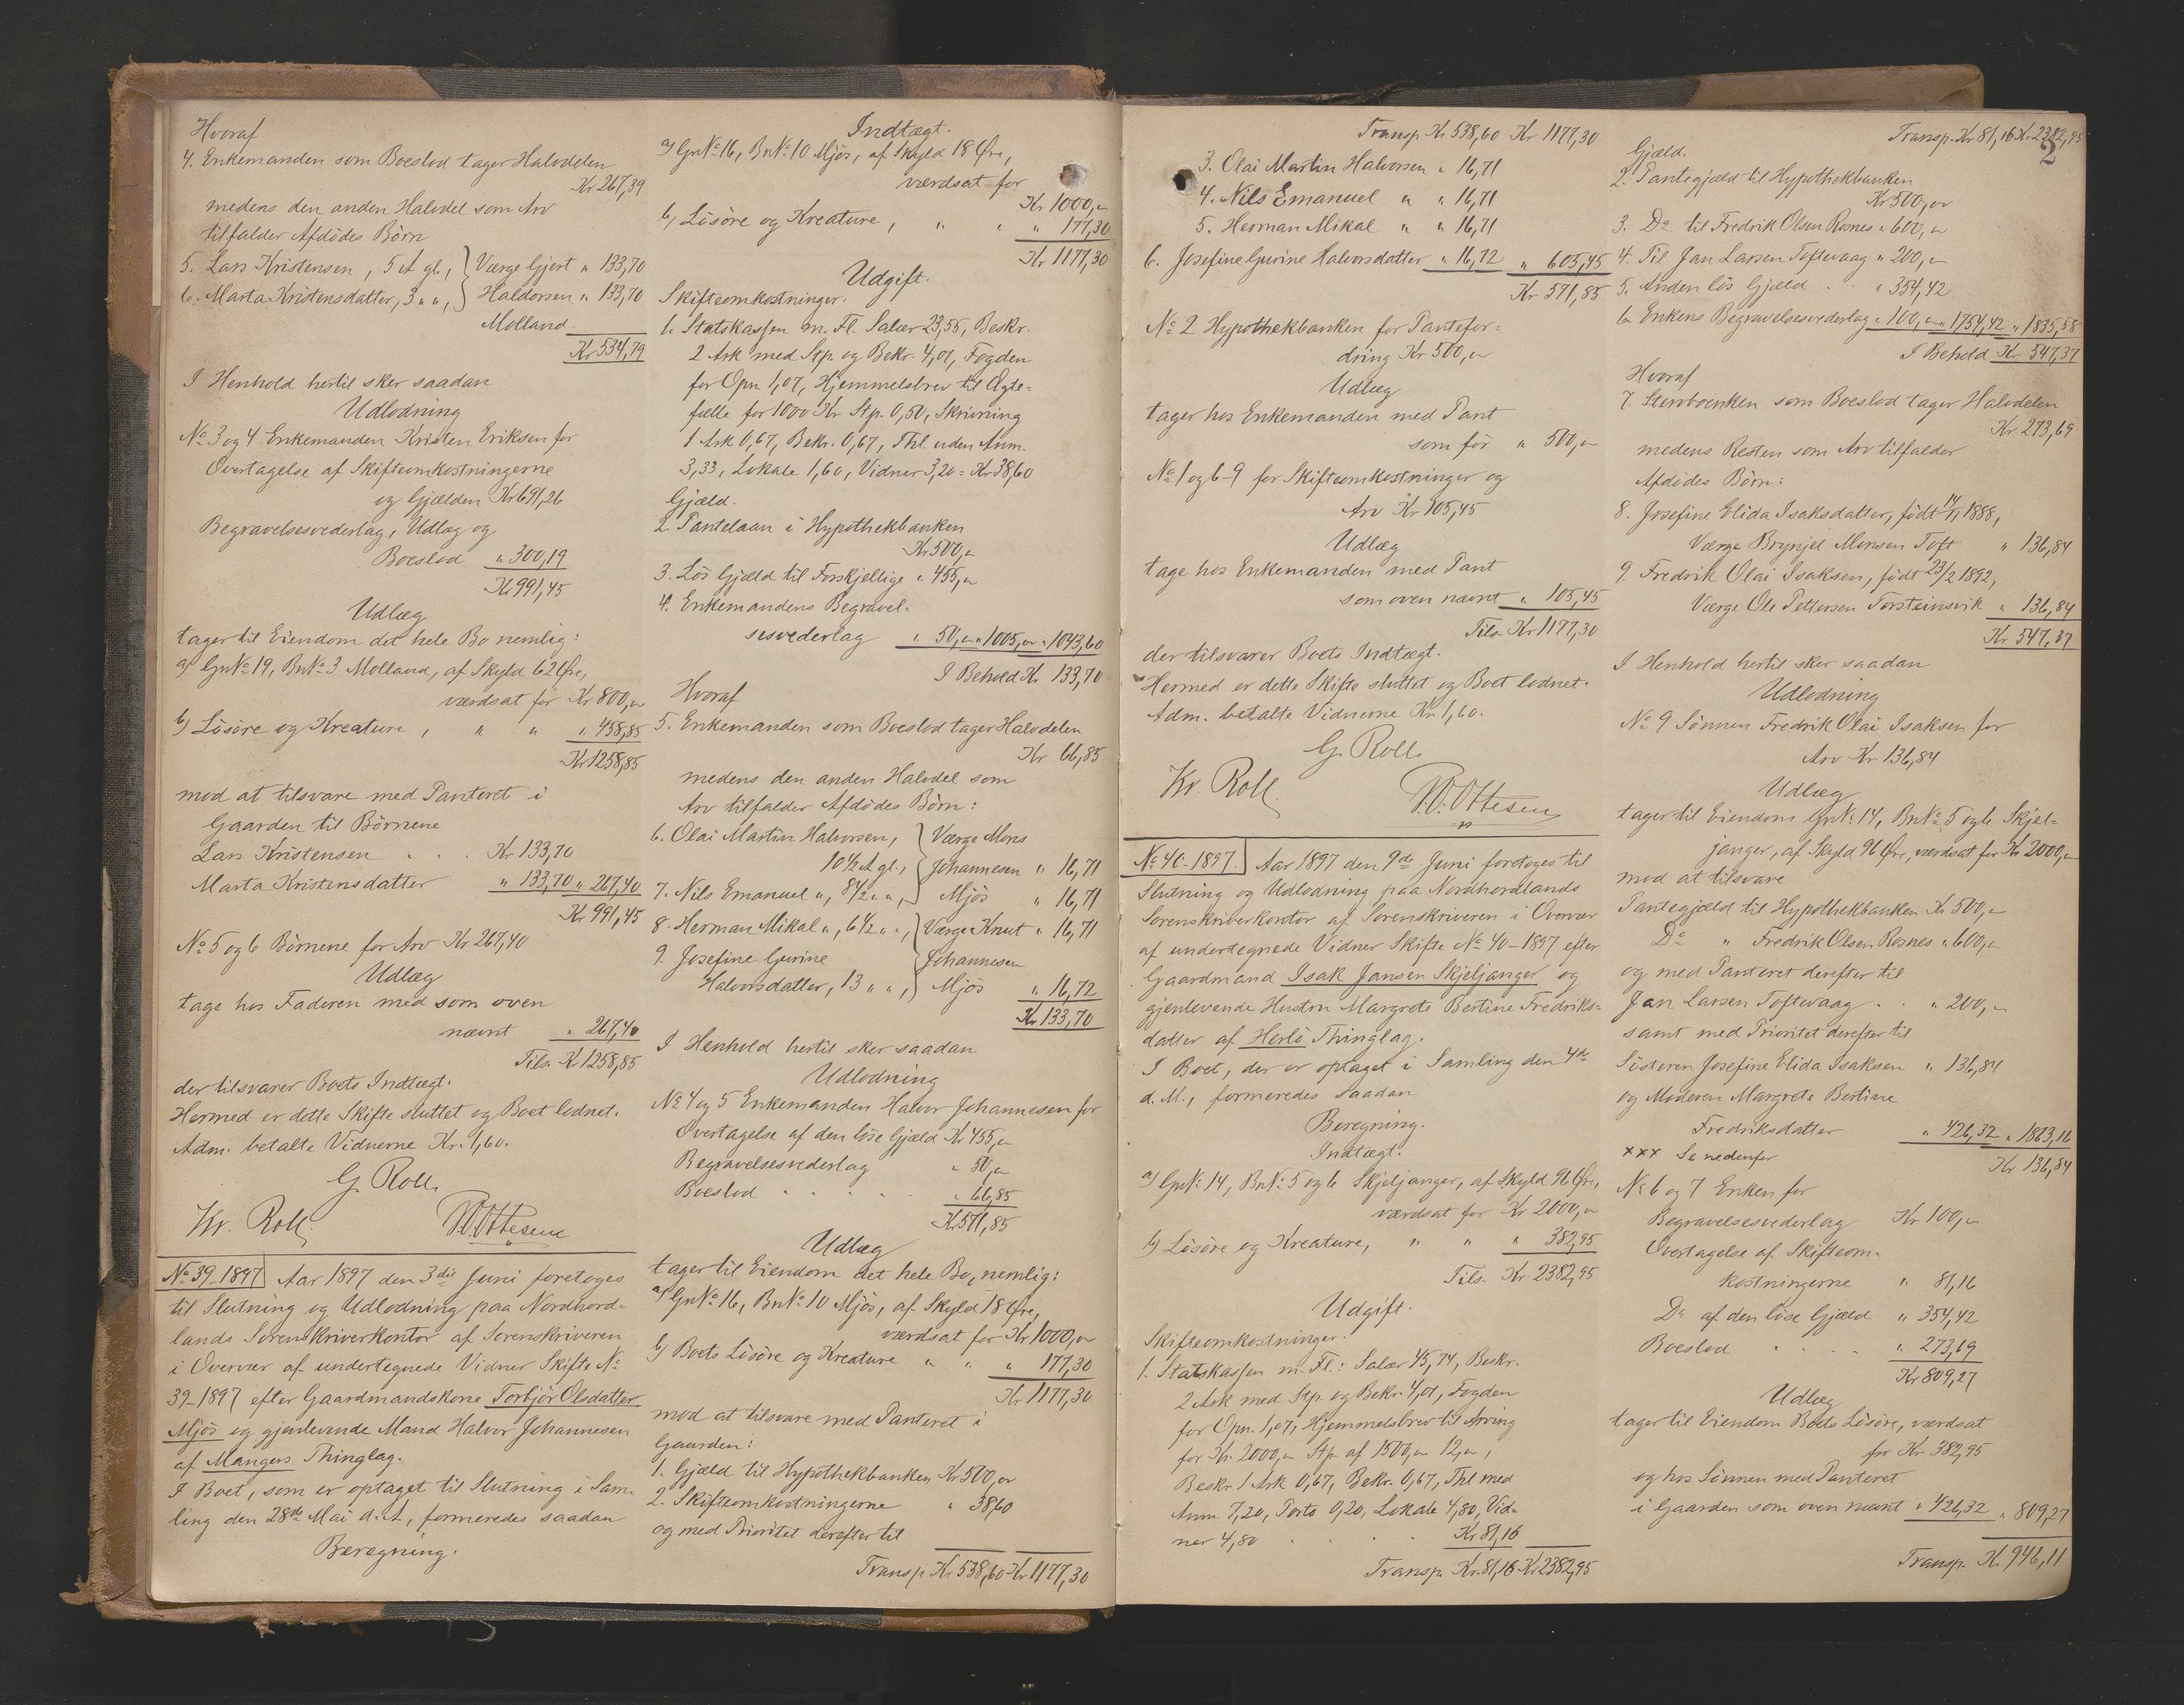 Hvoraf
4. Enkemanden som Boeslod tager Halvdelen
Kr 267,39
medens den anden Halvdel som Arv
tilfalder Afdödes Börn
5. Lars Kristensen, 5 A gl, } Værge Gjert " 133,70
6. Marta Kristensdatter, 3 " ", } Haldorsen " 133,70
Molland
Kr 534,79
I Henhold hertil sker saadan
Udlodning
No 3 og 4 Enkemanden Kristen Eriksen for
Overtagelse af Skifteomkostningerne
og Gjælden Kr 691,26
Begravelsesvederlag, Udlæg og
Boeslod " 300,19
Kr 991,45
Udlæg
tager til Eiendom det hele Bo nemlig:
a) Gn No 19, Bn No 3 Molland, af Skyld 62 Øre,
værdsat for Kr 800,"
b) Lösöre og Kreature, " " " 458,85
Kr 1258,85
mod at tilsvare med Panteret i
Gaarden til Börnene
Lars Kristensen . . . Kr 133,70
Marta Kristensdatter " 133,70 " 267,40
Kr 991,45
No 5 og 6 Börnene for Arv Kr 267,40
Udlæg
tage hos Faderen med som oven
nævnt " 267,40
Tils. Kr 1258,85
der tilsvarer Boets Indtægt.
Hermed er dette Skifte sluttet og Boet lodnet.
Adm. betalte Vidnerne Kr. 1,60.
G. Roll.
Kr. Roll. W. Ottesen
No 39-1897 Aar 1897 den 3die Juni foretoges
til Slutning og Udlodning paa Nordhord-
lands Sorenskriverkontor af Sorenskriveren
i Overvær af undertegnede Vidner Skifte No
39-1897 efter Gaardmandskone Torbjör Olsdatter
Mjös og gjenlevende Mand Halvor Johannesen
af Mangers Thinglag.
I Boet, som er optaget til Slutning i Sam-
ling den 28de Mai d. A, formeredes saadan
Beregning.
Indtægt.
a) Gn No 16, Bn No 10 Mjös, af Skyld 18 Øre,
værdsat for
Kr 1000,"
b) Lösöre og Kreature, " " " 177,30
Kr 1177,30
Udgift.
Skifteomkostninger.
1. Statskassen m. Fl. Salær 23,55, Beskr.
2 Ark med Stp. og Bekr. 4,01, Fogden
for Opn. 1,07, Hjemmelsbrev til Ægte-
fælle for 1000 Kr Stp. 0,50, Skrivning
1 Ark 0,67, Bekr. 0,67, Thl. uden Anm.
3,33, Lokale 1,60, Vidner 3,20 = Kr 38,60
Gjæld.
2. Pantelaan i Hypothekbanken
Kr 500,"
3. Lös Gjæld til Forskjellige " 455,"
4. Enkemandens Begravel-
sesvederlag " 50," " 1005," " 1043,60
I Behold Kr 133,70
Hvoraf
5. Enkemanden som Boeslod tager Halvdelen
Kr 66,85
medens den anden Halvdel som
Arv tilfalder Afdödes Börn:
6. Olai Martin Halvorsen, } Værge Mons
10 1/2 A gl., } Johannesen " 16,71
7. Nils Emanuel ", 8 1/2 " ", } Mjös " 16,71
8. Herman Mikal ", 6 1/2 " ", } Værge Knut " 16,71
9. Josefine Gurine } Johannesen
Halvorsdatter, 13 " ", } Mjös " 16,72
Kr 133,70
I Henhold hertil sker saadan
Udlodning
No 4 og 5 Enkemanden Halvor Johannesen for
Overtagelse af den löse Gjæld Kr 455,"
Begravelsesvederlag " 50,"
Boeslod . . . . " 66,85
Kr 571,85
Udlæg
tager til Eiendom det hele Bo, nemlig:
a) Gn No 16, Bn No 10 Mjös, af Skyld 18 Øre,
værdsat for Kr 1000,"
b) Boets Lösöre og Kreature " " " 177,30
Kr 1177,30
mod at tilsvare med Panteret i
Gaarden:
1. Gjæld til Hypothekbanken Kr 500,"
2. Skifteomkostningerne " 38,60
og med Prioritet derefter til
Transp. Kr 538,60 Kr 1177,30
Transp Kr 538,60 Kr 1177,30
3. Olai Martin Halvorsen " 16,71
4. Nils Emanuel " " 16,71
5. Herman Mikal " " 16,71
6. Josefine Gurine Halvorsdatter " 16,72 " 605,45
Kr 571,85
No 2 Hypothekbanken for Pantefor-
dring Kr 500,"
Udlæg
tager hos Enkemanden med Pant
som för " 500,"
No 1 og 6-9 for Skifteomkostninger og
Arv Kr 105,45
Udlæg
tage hos Enkemanden med Pant
som oven nævnt " 105,45
Tils. Kr 1177,30
der tilsvarer Boets Indtægt.
Hermed er dette Skifte sluttet og Boet lodnet.
Adm. betalte Vidnerne Kr. 1,60.
G. Roll.
Kr. Roll. W. Ottesen
No 40-1897. Aar 1897 den 9de Juni foretoges til
Slutning og Udlodning paa Nordhordlands
Sorenskriverkontor af Sorenskriveren i Overvær
af undertegnede Vidner Skifte No 40-1897 efter
Gaardmand Isak Jansen Skjeljanger og
gjenlevende Hustru Margrete Bertine Fredriks-
datter af Herlö Thinglag.
I Boet, der er optaget i Samling den 4de
d. M., formeredes saadan
Beregning.
Indtægt.
a) Gn No 14, Bn No 5 og 6 Skjeljanger, af Skyld 96 Øre,
værdsat for Kr 2000,"
b) Lösöre og Kreature, " " " 382,95
Tils. Kr 2382,95
Udgift.
Skifteomkostninger.
1. Statskassen m. Fl.: Salær 45,74, Beskr.
2 Ark med Stp. og Bekr. 4,01, Fogden
for Opn. 1,07, Hjemmelsbrev til Arving
for Kr. 2000," Stp. af 1500," 12,",
Beskr. 1 Ark 0,67, Bekr. 0,67, Thl. med
Anm. 7,20, Porto 0,20, Lokale 4,80, Vid-
ner 4,80 . . . Kr 81,16
Transp. Kr. 81,16 Kr 2382,95
Transp. Kr 81,16 Kr 2382,95
2
Gjæld.
2. Pantegjæld til Hypothekbanken
Kr 500,"
3. Do til Fredrik Olsen Rosnes " 600,"
4. Til Jan Larsen Toftevaag " 200,"
5. Anden lös Gjæld . . " 354,42
6. Enkens Begravelsesvederlag " 100," " 1754,42 " 1835,58
I Behold Kr 547,37
Hvoraf
7. Stervboenken som Boeslod tager Halvdelen
Kr 273,69
medens Resten som Arv tilfalder
Afdödes Börn:
8. Josefine Elida Isaksdatter, födt 14/11 1888,
Værge Brynjel Monsen Toft " 136,84
9. Fredrik Olai Isaksen, födt 23/2 1892,
Værge Ole Pettersen Torsteinsvik " 136,84
Kr 547,37
I Henhold hertil sker saadan
Udlodning
No 9 Sönnen Fredrik Olai Isaksen for
Arv Kr 136,84
Udlæg
tager til Eiendom Gn No 14, Bn No 5 og 6 Skjel-
janger, af Skyld 96 Øre, værdsat for Kr 2000,"
mod at tilsvare
Pantegjæld til Hypothekbanken Kr 500,"
Do " Fredrik Olsen Rosnes " 600,"
og med Panteret derefter til
Jan Larsen Toftevaag . . " 200,"
samt med Prioritet derefter til
Sösteren Josefine Elida Isaksen " 136,84
og Moderen Margrete Bertine
Fredriksdatter " 426,32 " 1863,16
xxx Se nedenfor Kr 136,84
No 6 og 7 Enken for
Begravelsesvederlag Kr 100,"
Overtagelse af Skifteom-
kostningerne " 81,16
Do af den löse Gjæld " 354,42
Boeslod . . . . " 273,69
Kr 809,27
Udlæg
tager til Eiendom Boets Lösöre, værdsat
for Kr 382,95
og hos Sönnen med Panteret
i Gaarden som oven nævnt " 426,32 " 809,27
Transp. Kr 946,11